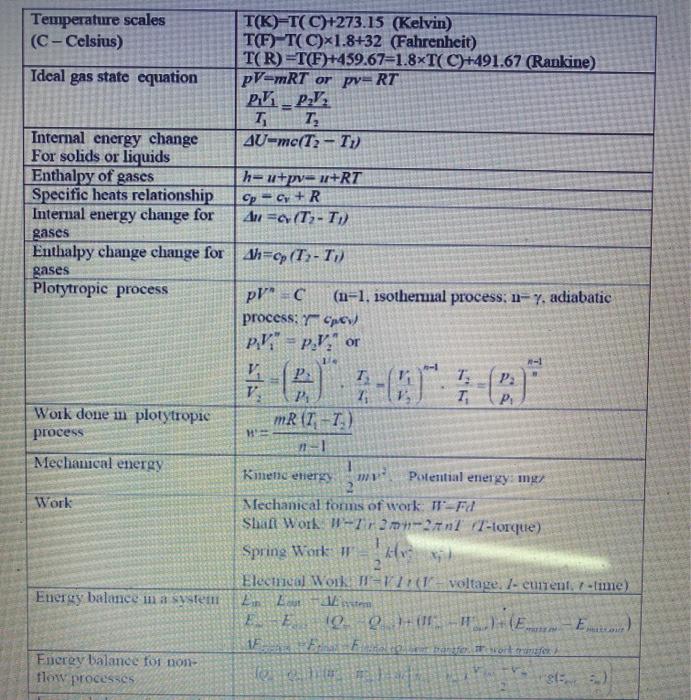 Temperature scales
(C – Celsius)
T(K)=T( C)+273.15 (Kelvin)
T(F)=T( C)×1.8+32 (Fahrenheit)
T( R) =T(F)+459.67=1.8×T( C)+491.67 (Rankine)
Ideal gas state equation
pV=mRT or pv= RT
p₁V₁/T₁ = p₂V₂/T₂
Internal energy change
For solids or liquids
ΔU=mc(T₂ – T₁)
Enthalpy of gases
h= u+pv= u+RT
Specific heats relationship
cp = cv + R
Internal energy change for
gases
Δu =cv (T₂ - T₁)
Enthalpy change change for
gases
Δh=cp (T₂ - T₁)
Plotytropic process
pVⁿ = C (n=1, isothermal process; n= γ, adiabatic
process; γ= cp/cv)
p₁V₁ⁿ = p₂V₂ⁿ or
V₁/V₂ = (p₂/p₁)^1/n , T₂/T₁ = (V₁/V₂)^n-1 , T₂/T₁ = (p₂/p₁)^n-1/n
Work done in plotytropic
process
w = mR (T₁ – T₂)/n – 1
Mechanical energy
Kinetic energy 1/2 mv² Potential energy: mgz
Work
Mechanical forms of work W=Fd
Shaft Work: (T-torque)
Spring Work W = 1/2 k(
Electrical Work: W=VIt (V – voltage, I- current, t -time)
Energy balance in a system
Energy balance for non-
flow processes